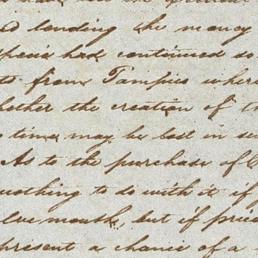 lending the money
had continued so
to from Tampico where
whether the creation of th
time may be best in se
As to the purchase of
nothing to do with it if
twelvemonth, but if price
present a chance of a